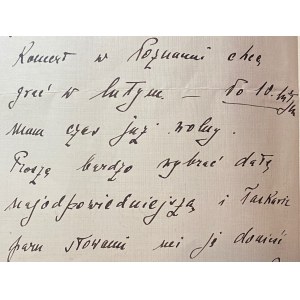 Koncert w Poznaniu chcę
grać w lutym. – Po 10. 
mam czas już wolny.
Proszę bardzo wybrać datę
najodpowiedniejszą i łaskawie
paru słowami mi ją donieść